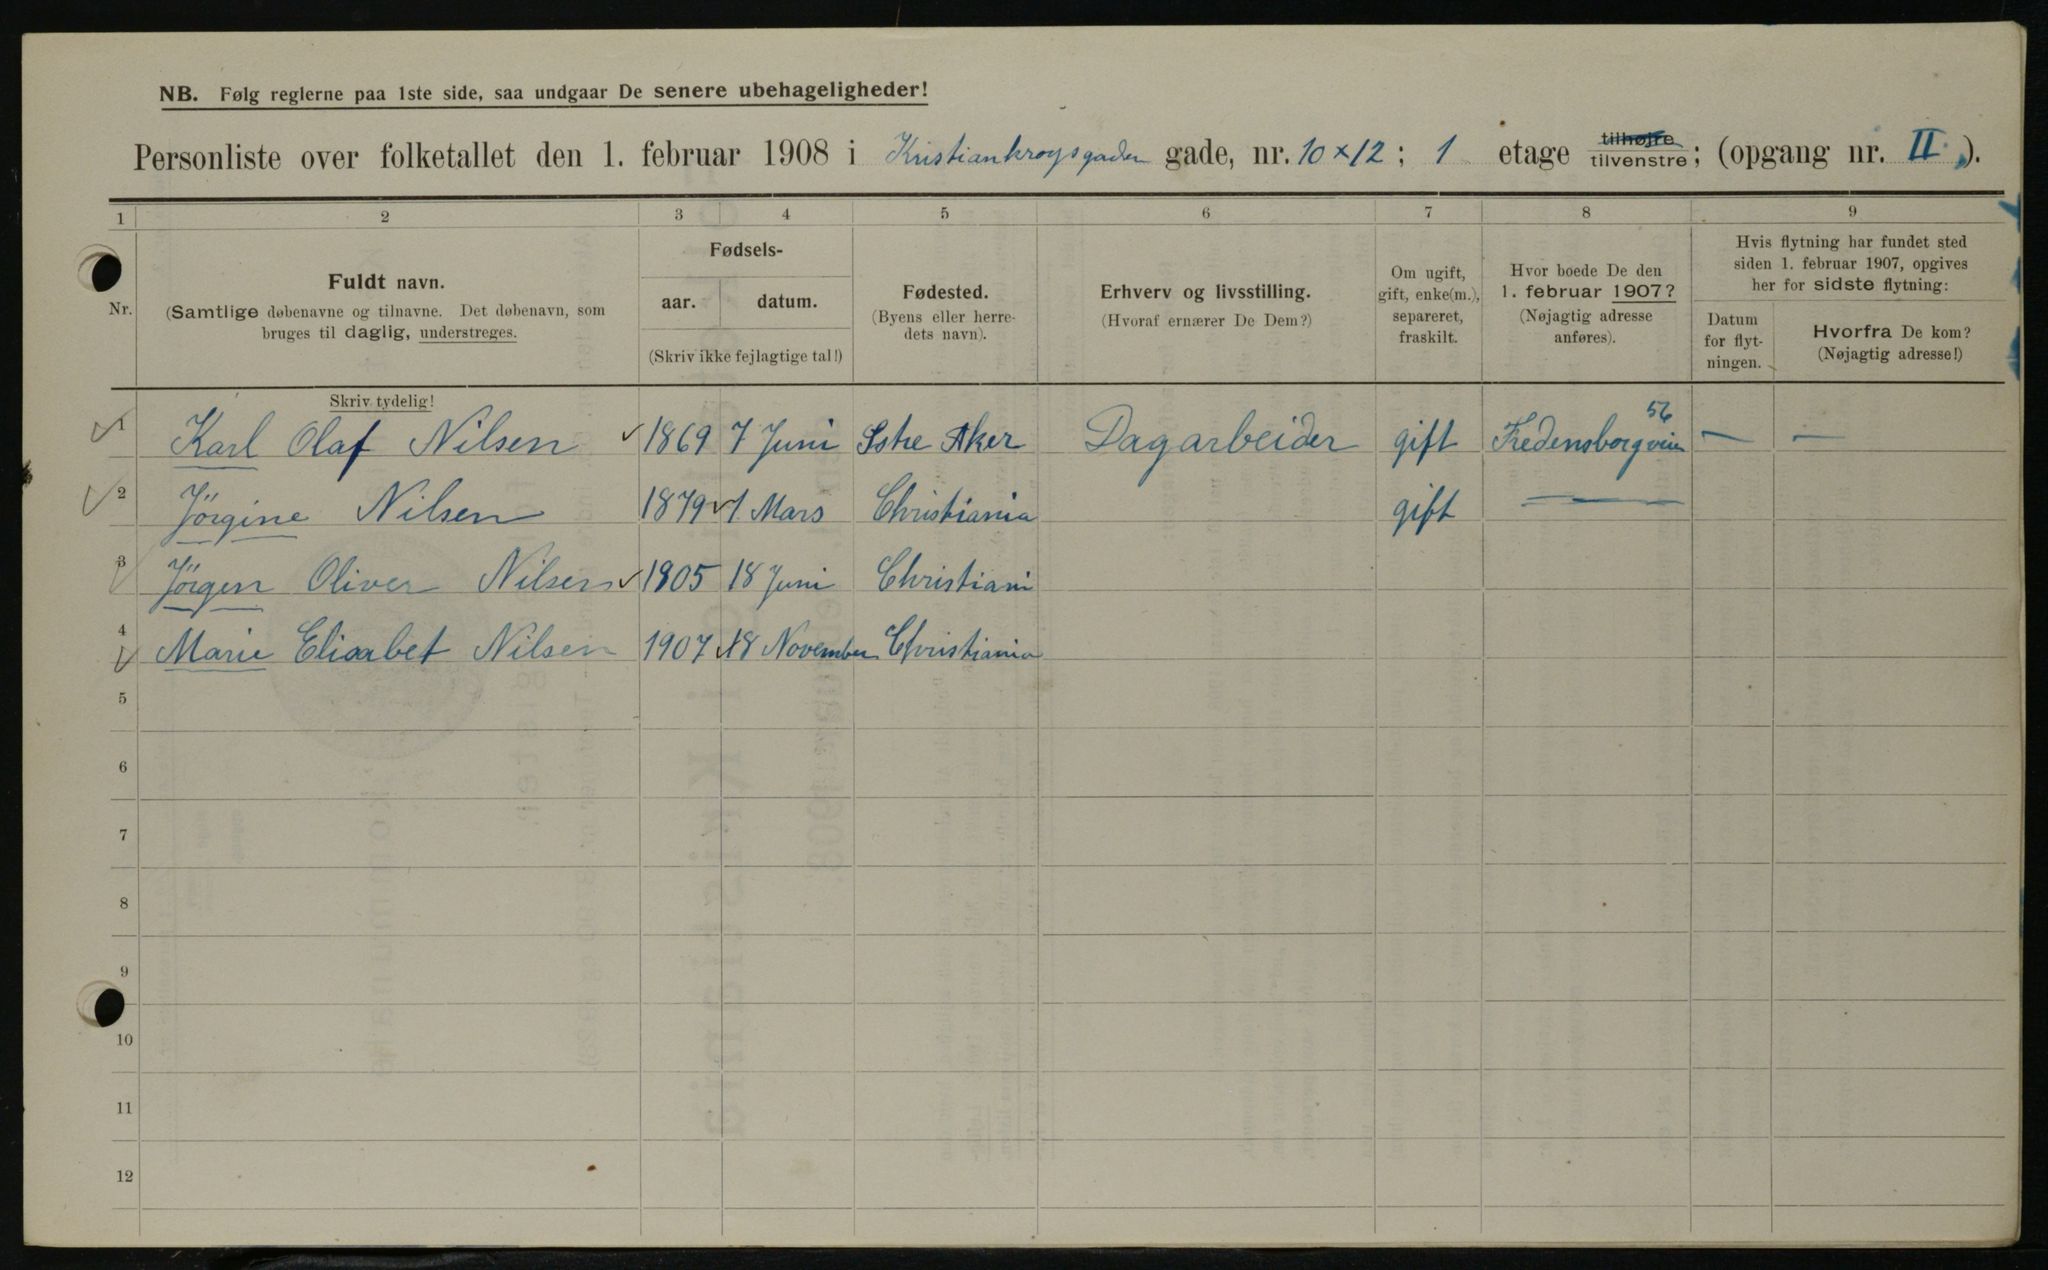 NB. Følg reglerne paa 1ste side, saa undgaar De senere ubehageligheder!
Personliste over folketallet den 1. februar 1908 i Kristiankrogsgaden gade, nr. 10 × 12 ; 1 etage tilhøjre tilvenstre; (opgang nr. II.).
1 2 3 4 5 6 7 8 9
Nr.
Fuldt navn.
(Samtlige døbenavne og tilnavne. Det døbenavn, som
bruges til daglig, understreges.
Skriv tydelig!
Fødsels-
aar. datum.
(Skriv ikke fejlagtige tal!)
Fødested.
(Byens eller herre-
dets navn).
Erhverv og livsstilling.
(Hvoraf ernærer De Dem?)
Om ugift,
gift, enke(m.),
separeret,
fraskilt.
Hvor boede De den
1. februar 1907?
(Nøjagtig adresse
anføres).
Hvis flytning har fundet sted
siden 1. februar 1907, opgives
her for sidste flytning:
Datum
for flyt-
ningen.
Hvorfra De kom?
(Nøjagtig adresse!)
1 Karl Olaf Nilsen 1869 7 Juni Østre Aker Dagarbeider gift Fredensborgveien 56 — —
2 Jörgine Nilsen 1879 1 Mars Christiania gift —
3 Jörgen Oliver Nilsen 1905 18 Juni Christiani
4 Marie Elisabet Nilsen 1907 18 November Christiania
5
6
7
8
9
10
11
12